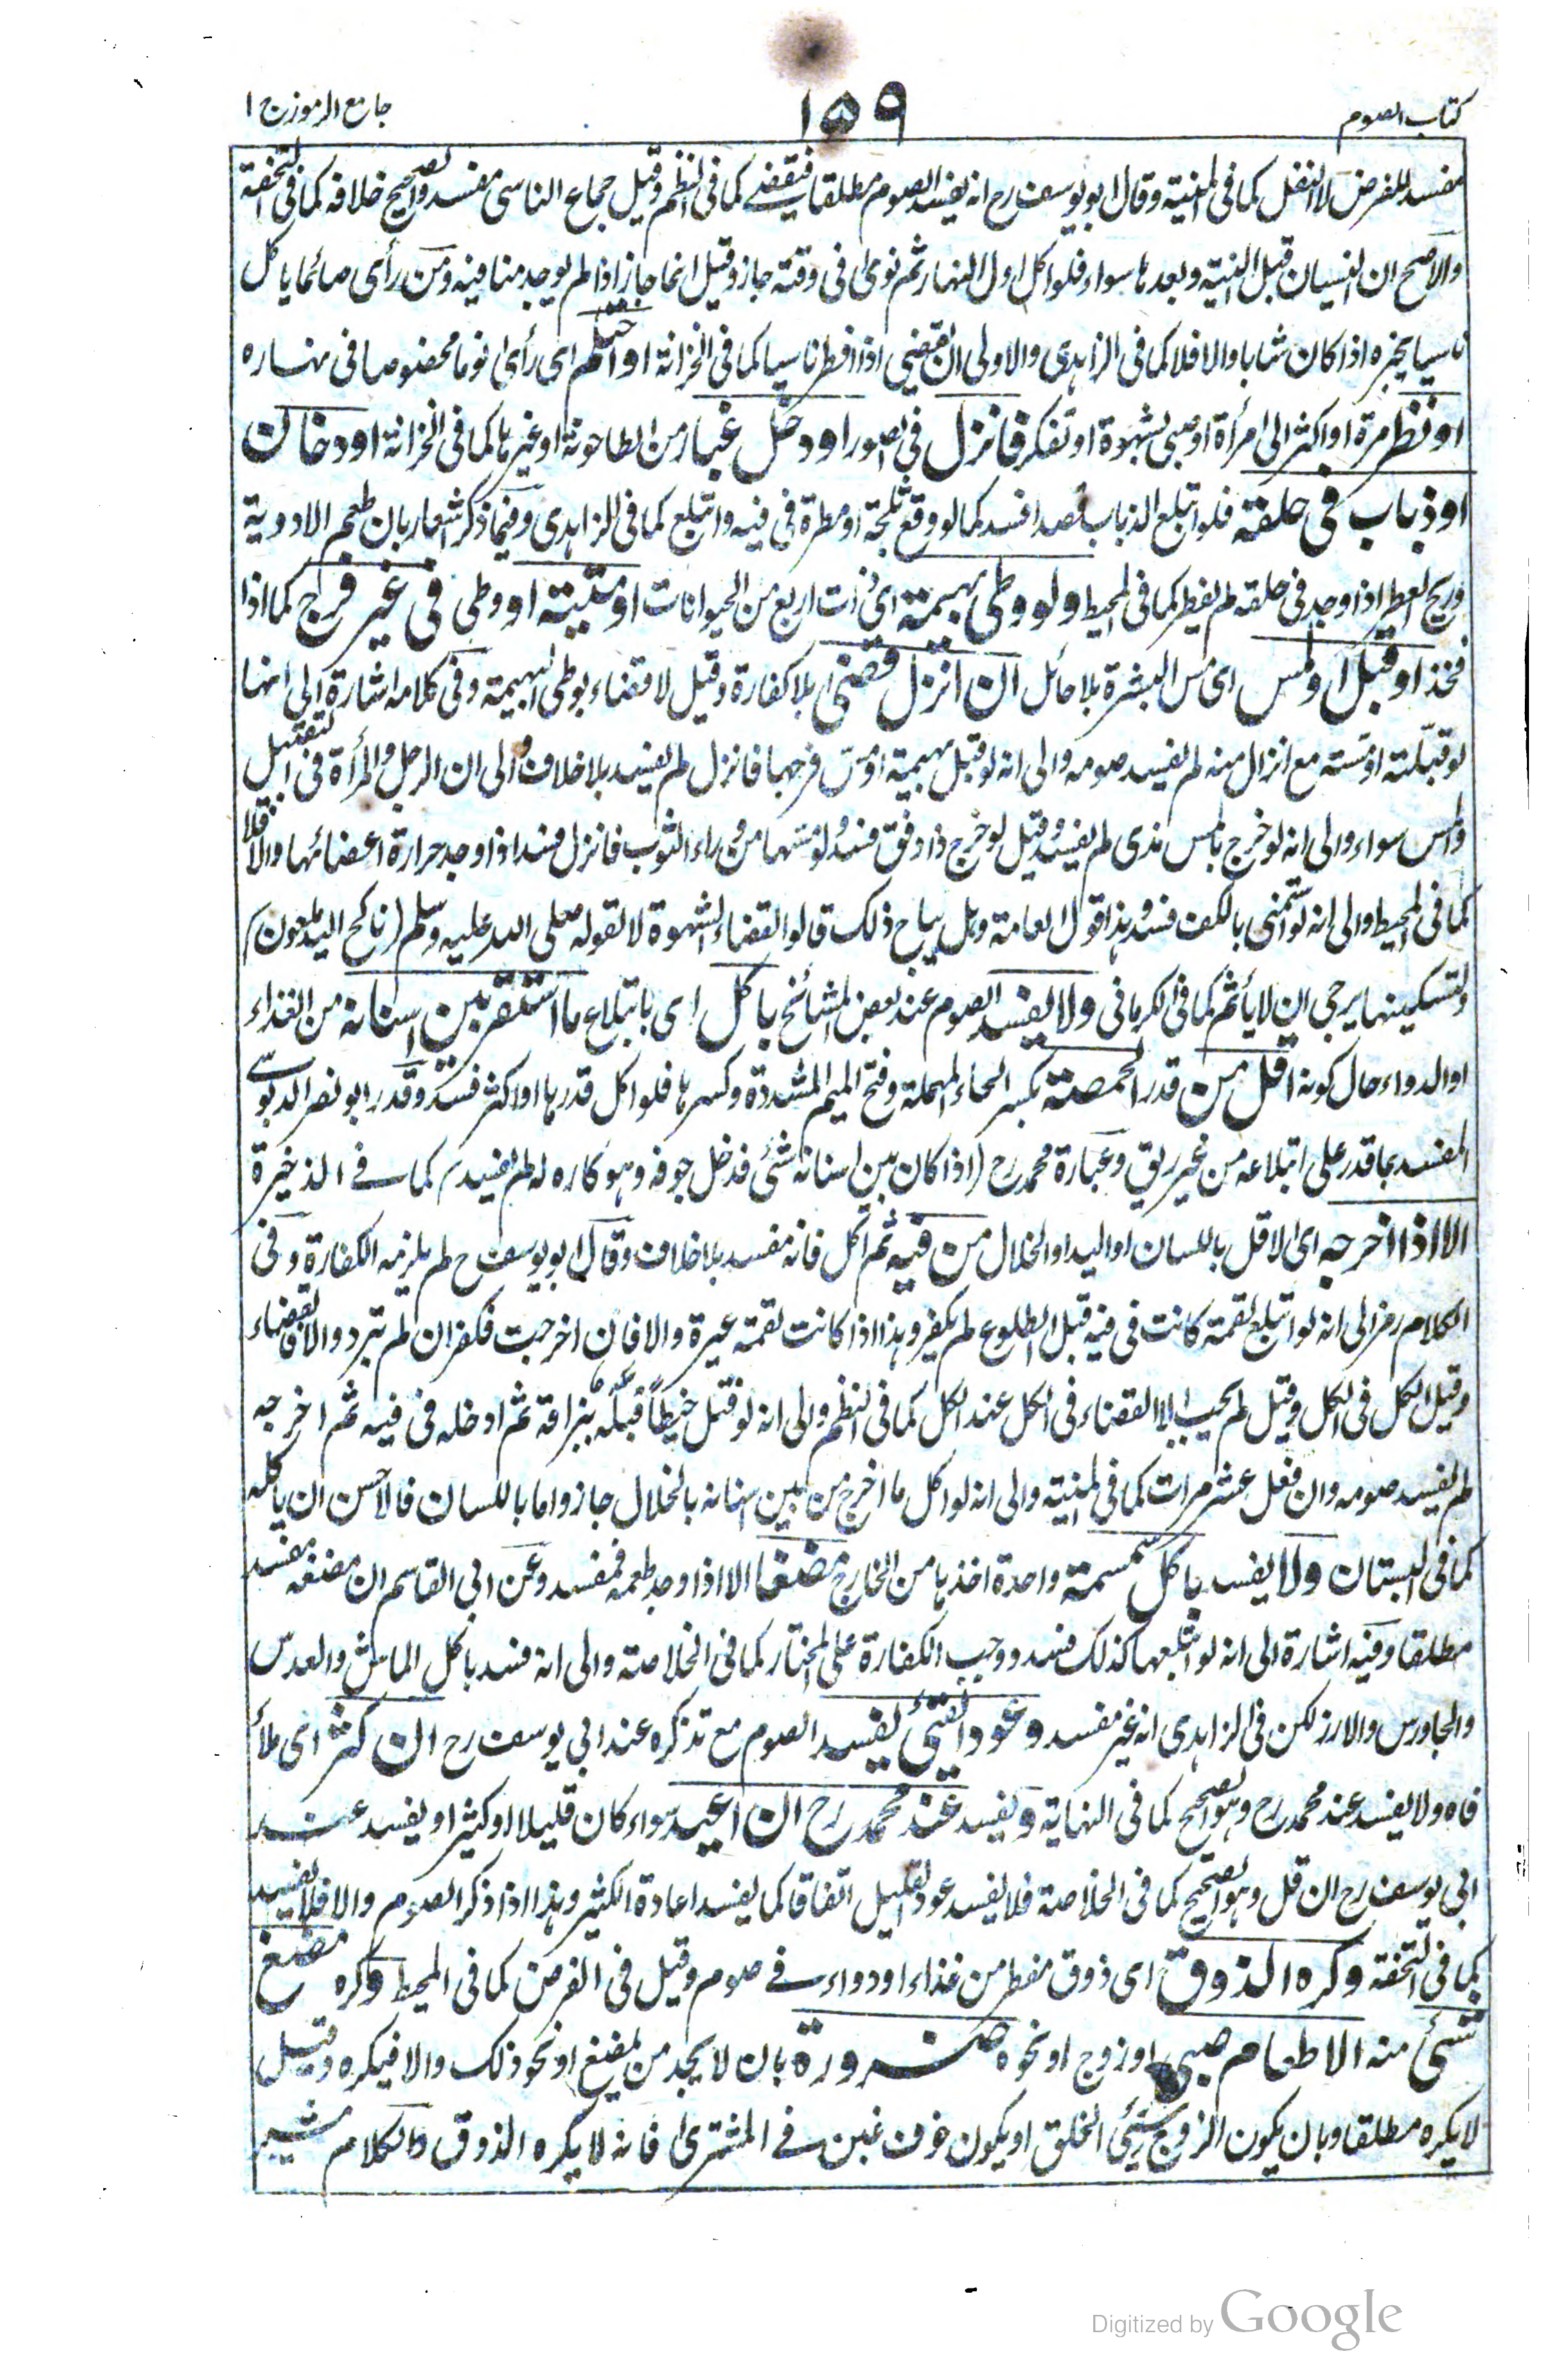 كتاب الصوم
١٥٩
جامع الرموز ج ١
مفسد للفرض لا النفل كما فى المنية وقال ابو يوسف رح انه يفسد الصوم مطلقا فيقضے كما فى النظم وقيل جماع الناسى مفسد والصحيح خلافه كما فى التحفة
والاصح ان النسيان قبل النية وبعدها سواء فلو اكل اول النهار ثم نوى فى وقته جاز وقيل انما جاز اذا لم يوجد منافيه ومن رأى صائما ياكل
ناسيا يخبره اذا كان شابا والا فلا كما فى الزاهدى والاولى ان يقضى اذا افطر ناسيا كما فى الخزانة او احتلم اى رأى نوما مخصوصا فى نهاره
او نظر مرة او اكثر الى امرأة او صبى بشهوة او تفكر فانزل فى الصور او دخل غبار من الطاحونة او غيرها كما فى الخزانة او دخان
او ذباب فى حلقه فلو ابتلع الذباب قصدا فسد كما لو وقع ثلجة او مطرة فى فيه وابتلع كما فى الزاهدى وفيما ذكر اشعار بان طعم الادوية
وريح العطر اذا وجد فى حلقه لم يفطر كما فى المحيط ولو وطى بهيمة اى ذات اربع من الحيوانات او ميتة او وطى فى غير فرج كما اذا
فخذ او قبل او لمس اى مس البشرة بلا حائل ان انزل قضى بلا كفارة وقيل لا قضاء بوطى البهيمة وفى كلامه اشارة الى انها
لو قبلته او مسته مع انزال منه لم يفسد صومه والى انه لو قبل بهيمة او مس فرجها فانزل لم يفسد بلا خلاف والى ان الرجل والمرأة فى التقبيل
والمس سواء والى انه لو خرج بالمس مذى لم يفسد وقيل لو خرج ذا دفق فسد ولو مسها من وراء الثوب فانزل فسد اذا وجد حرارة اعضائها والا فلا
كما فى المحيط والى انه لو استمنى بالكف فسد وهذا قول العامة وهل يباح ذلك قالوا لقضاء الشهوة لا لقوله صلى الله عليه وسلم (ناكح اليد ملعون)
ولتسكينها يرجى ان لا يأثم كما فى الكرمانى ولا يفسد الصوم عند بعض المشائخ باكل اى بابتلاع ما استقر بين اسنانه من الغذاء
او الدواء حال كونه اقل من قدر الحمصة بكسر الحاء المهملة وفتح الميم المشددة وكسرها فلو اكل قدرها او اكثر فسد وقدر ابو نصر الدبوسے
المفسد بما قدر على ابتلاعه من غير ريق وعبارة محمد رح (اذا كان بين اسنانه شئ فدخل جوفه وهو كاره له لم يفسد) كما فے الذخيرة
الا اذا اخرجه اى الاقل باللسان او اليد او الخلال من فيه ثم اكل فانه مفسد بلا خلاف وقال ابو يوسف رح لم يلزمه الكفارة وفى
الكلام رمز الى انه لو ابتلع لقمة كانت فى فيه قبل الطلوع لم يكفر وهذا اذا كانت لقمة غيره والا فان اخرجت فكفر ان لم تبرد والا فالقضاء
وقيل الكل فى الكل وقيل لم يجب الا القضاء فى الكل عند الكل كما فى النظم والى انه لو فتل خيطا فبله ببزاقه ثم ادخله فى فيه ثم اخرجه
لم يفسد صومه وان فعل عشر مرات كما فى المنية والى انه لو اكل ما اخرج من بين اسنانه بالخلال جاز واما باللسان فالاحسن ان ياكله
كما فى البستان ولا يفسد باكل سمسمة واحدة اخذها من الخارج مضغا الا اذا وجد طعمه فمفسد وعن ابى القاسم ان مضغه مفسد
مطلقا وفيه اشارة الى انه لو ابتلعها كذلك فسد ووجب الكفارة على المختار كما فى الخلاصة والى انه فسد باكل الماش والعدس
والجاورس والارز لكن فى الزاهدى انه غير مفسد وعود القئ يفسد الصوم مع تذكره عند ابى يوسف رح ان كثر اى ملأ
فاه ولا يفسد عند محمد رح وهو الصحيح كما فى النهاية ويفسد عند محمد رح ان اعيد سواء كان قليلا او كثيرا ويفسد عند
ابى يوسف رح ان قل وهو الصحيح كما فى الخلاصة فلا يفسد عود القليل اتفاقا كما يفسد اعادة الكثير وهذا اذا ذكر الصوم والا فلا يفسد
كما فى التحفة وكره الذوق اى ذوق مفطر من غذاء او دواء فے صوم وقيل فى الفرض كما فى المحيط وكره مضغ
شئ منه الا طعام صبى او زوج او نحوه ضرورة بان لا يجد من يمضغ او نحو ذلك والا فيكره وقيل
لا يكره مطلقا وبان يكون الزوج سيئ الخلق او يكون خوف غبن فے المشترى فانه لا يكره الذوق والكلام مشير
Digitized by Google